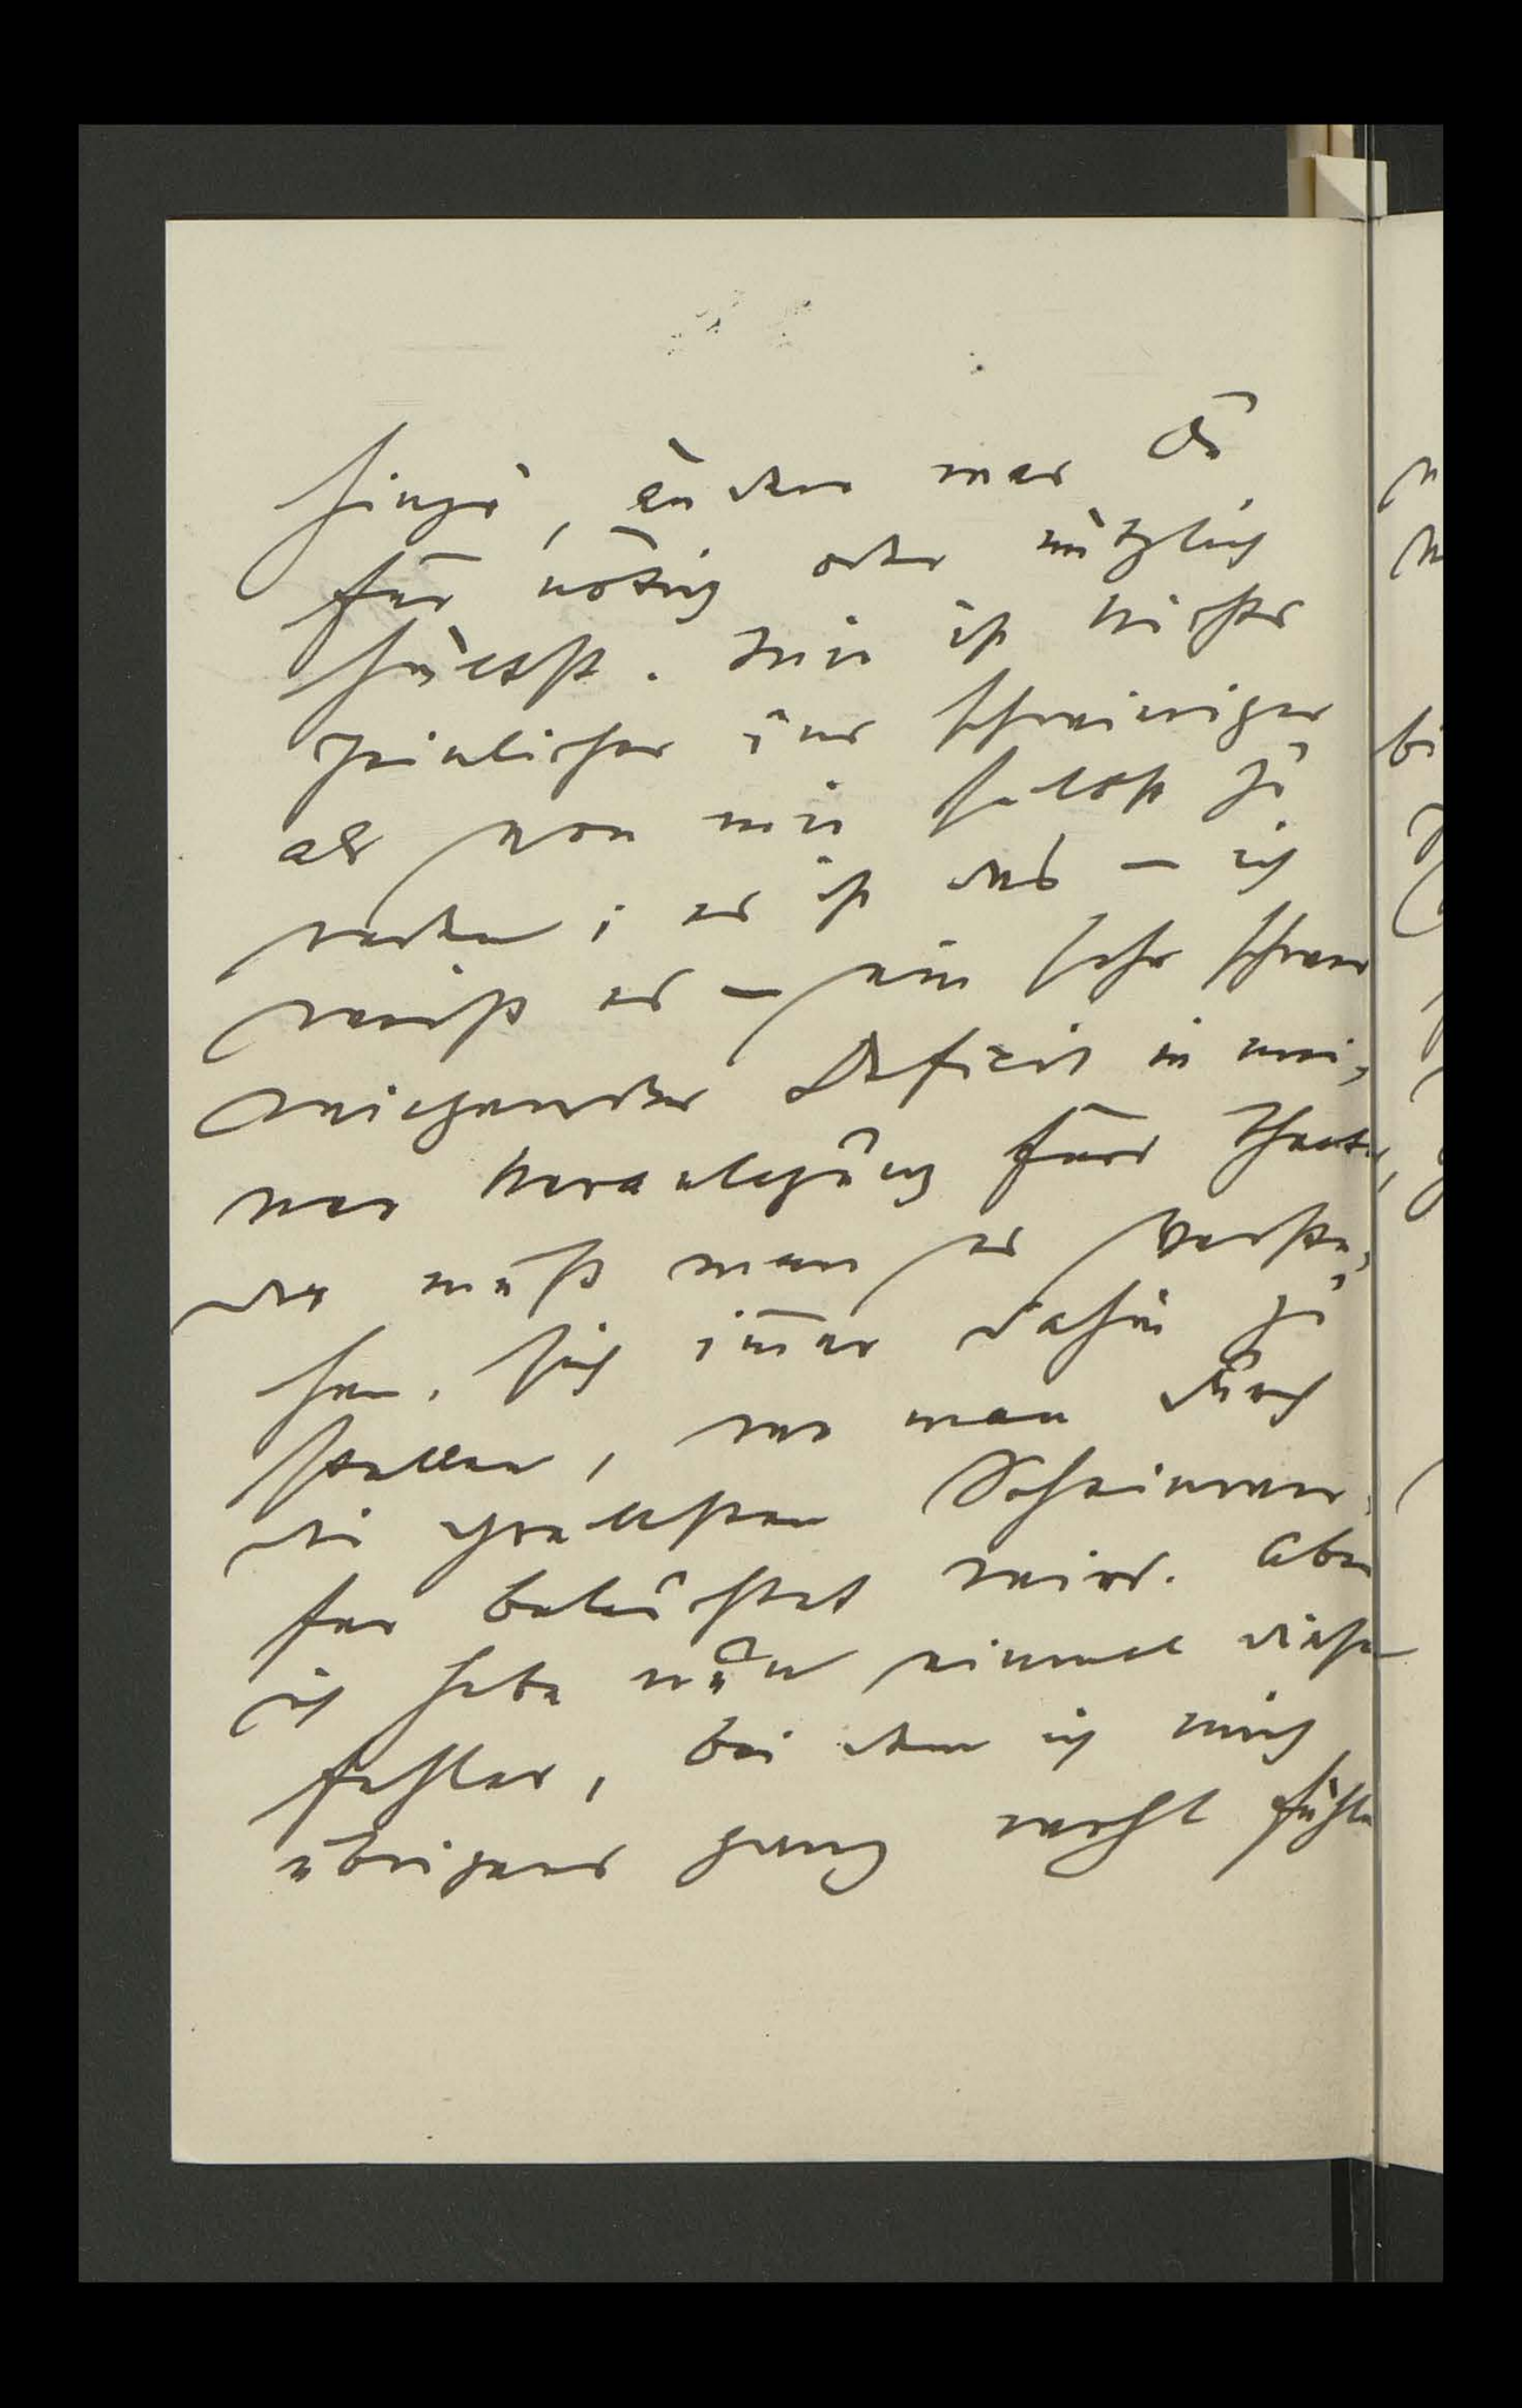 hinzu, ändere was Du
für nötig oder nützlich
hältst. Mir ist nichts
peinlicher und schwieriger
als von mir selbst zu
reden; es ist das – ich
weiß es – ein sehr schwer
wiegendes Defizit in mei-
ner Veranlagung fürs Theater,
da muß man es verste-
hen, sich immer dahin zu
stellen, wo man durch
die grellsten Scheinwer-
fer beleuchtet wird. Aber
ich habe nun einmal diesen
Fehler, bei dem ich mich
übrigens ganz wohl fühle